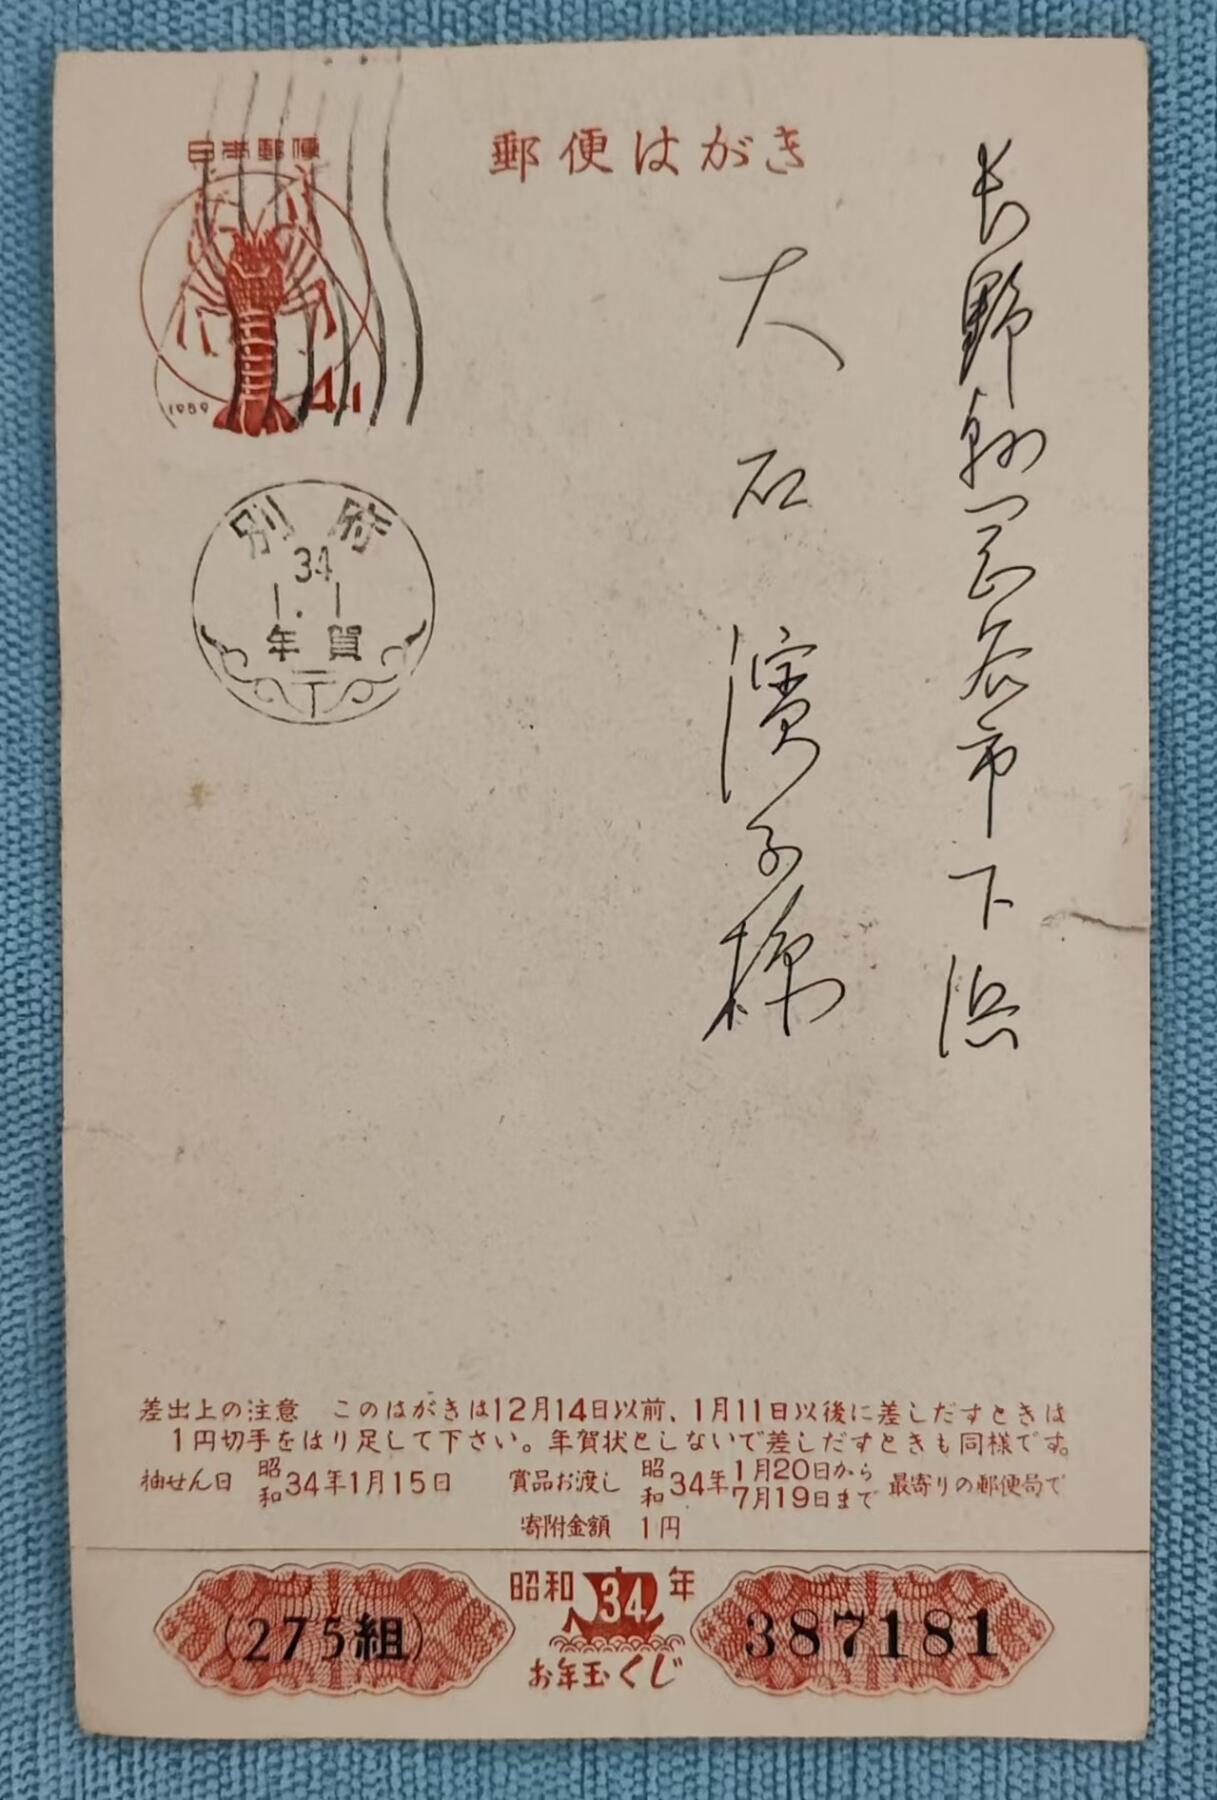 日本郵便
郵便はがき
1959
4+1
別府
34
1.1
年賀
長野縣岡谷市下浜
大石濱子様
差出上の注意 このはがきは12月14日以前、1月11日以後に差しだすときは
1円切手をはり足して下さい。年賀状としないで差しだすときも同様です。
抽せん日 昭和34年1月15日 賞品お渡し 昭和34年1月20日から7月19日まで 最寄りの郵便局で
寄附金額 1円
(275組)
昭和34年
お年玉くじ
387181